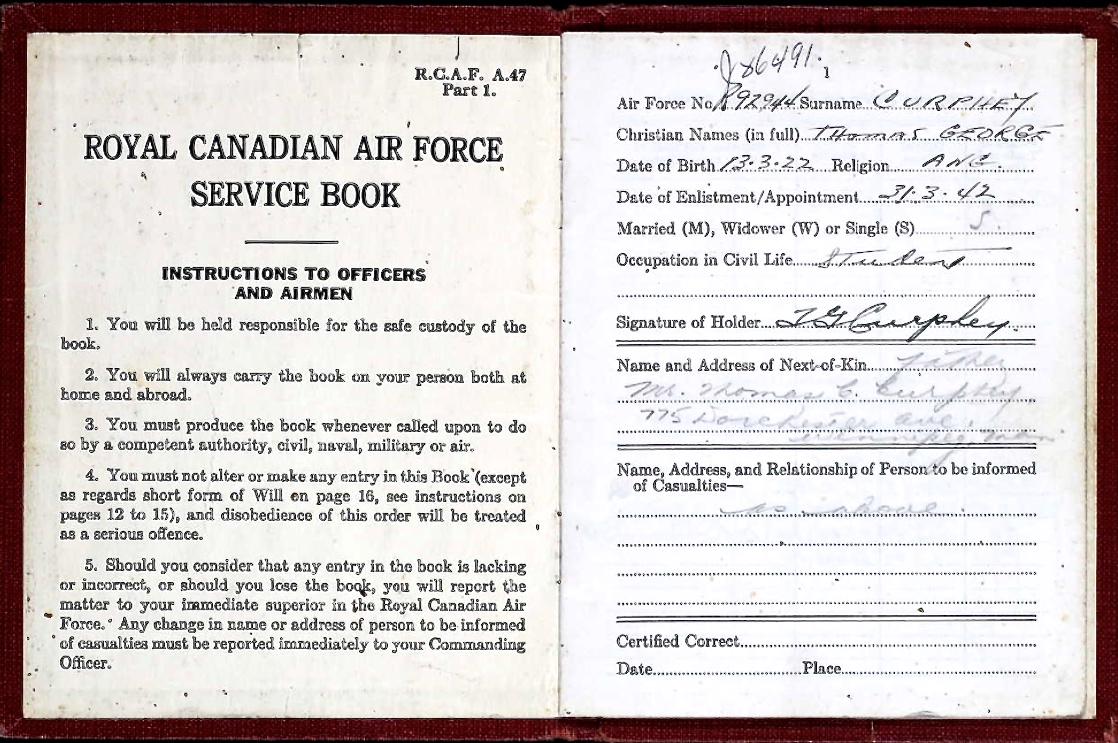 R.C.A.F. A.47
Part 1.
ROYAL CANADIAN AIR FORCE
SERVICE BOOK
INSTRUCTIONS TO OFFICERS
AND AIRMEN
1. You will be held responsible for the safe custody of the
book.
2. You will always carry the book on your person both at
home and abroad.
3. You must produce the book whenever called upon to do
so by a competent authority, civil, naval, military or air.
4. You must not alter or make any entry in this Book (except
as regards short form of Will on page 16, see instructions on
pages 12 to 15), and disobedience of this order will be treated
as a serious offence.
5. Should you consider that any entry in the book is lacking
or incorrect, or should you lose the book, you will report the
matter to your immediate superior in the Royal Canadian Air
Force. Any change in name or address of person to be informed
of casualties must be reported immediately to your Commanding
Officer.
J86491
1
Air Force No. R92944 Surname CURPHEY
Christian Names (in full) Thomas GEORGE
Date of Birth 13.3.22 Religion ANG.
Date of Enlistment/Appointment 31.3.42
Married (M), Widower (W) or Single (S) S
Occupation in Civil Life Student
Signature of Holder TG Curphey
Name and Address of Next-of-Kin father
Mr. Thomas C. Curphey
775 Dorchester Ave.
Winnipeg, Man
Name, Address, and Relationship of Person to be informed
of Casualties—
as above.
Certified Correct
Date Place